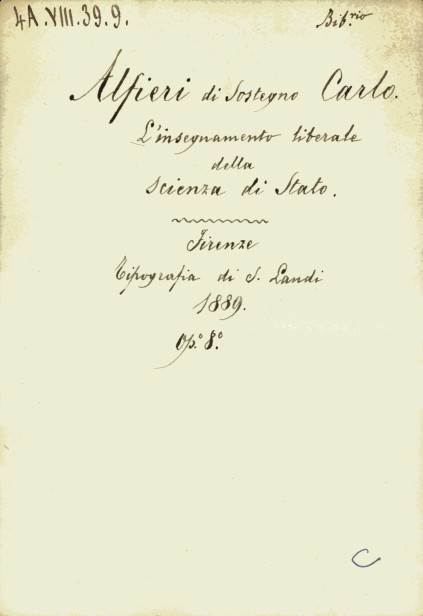 4A.VIII.39.9.
Bib.rio
Alfieri di Sostegno Carlo.
L'insegnamento liberale
della
Scienza di Stato.
Firenze
Tipografia di S. Landi
1889.
Op.o 8.o
C